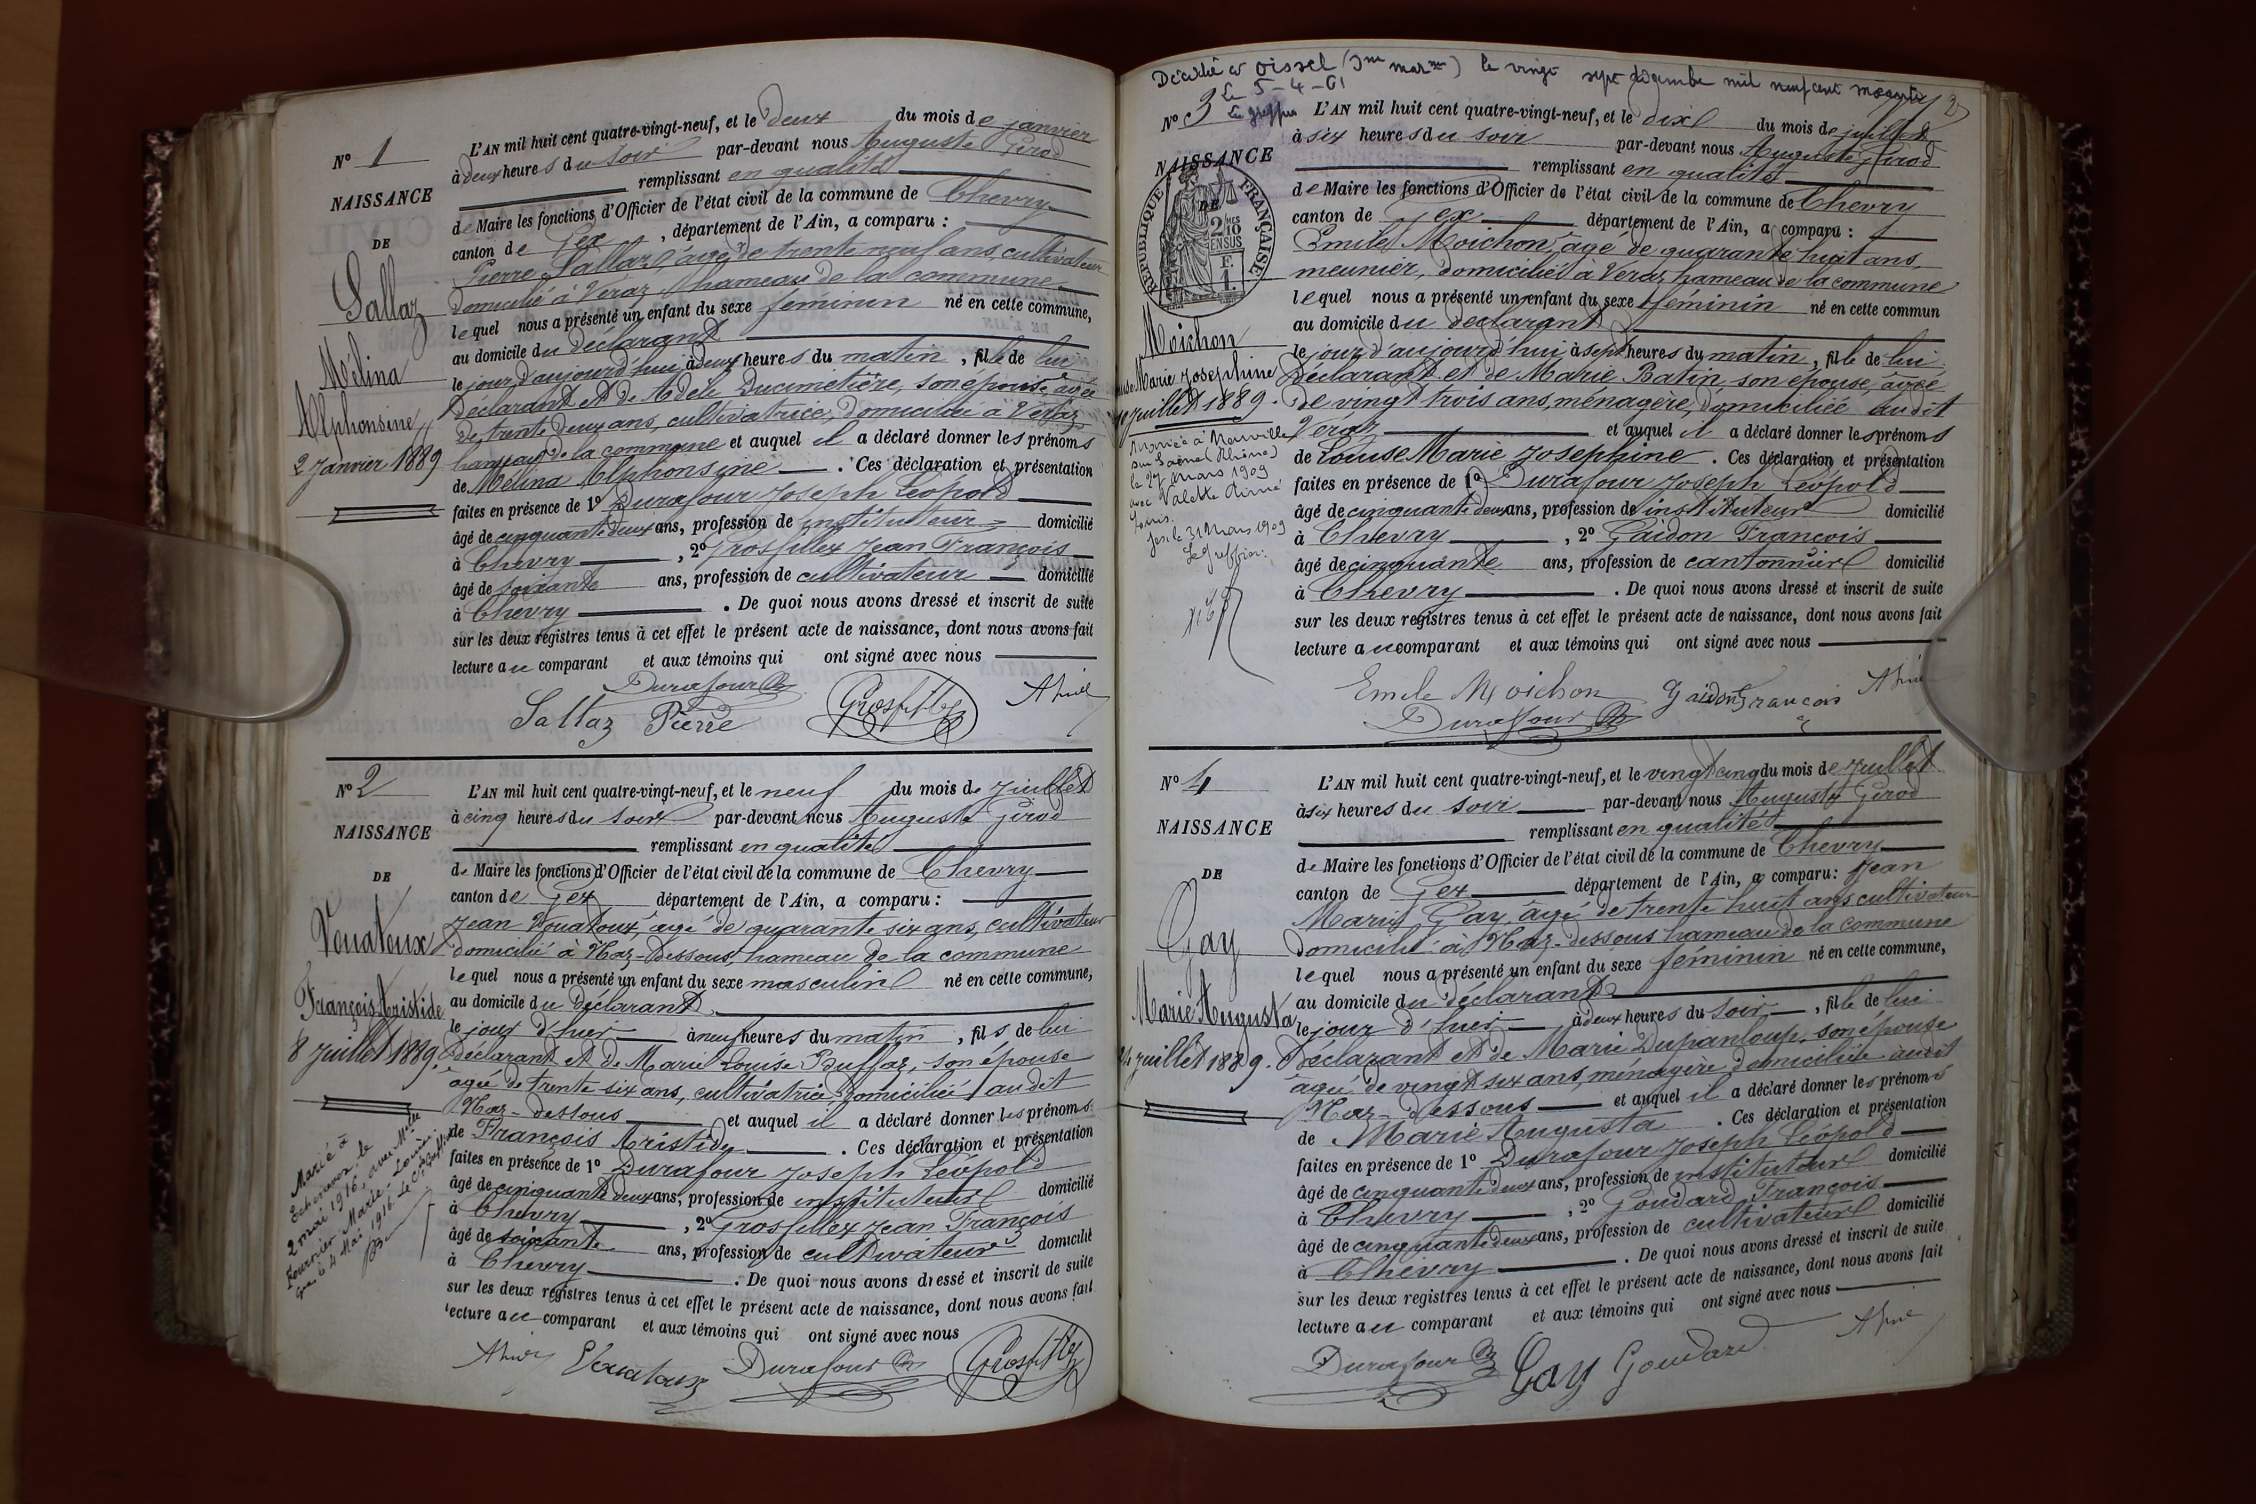 N° 1
NAISSANCE
DE
Sallaz
Mélina
Alphonsine
2 Janvier 1889
L'AN mil huit cent quatre-vingt-neuf, et le deux du mois de janvier
à deux heures du soir par-devant nous Auguste Girod
remplissant en qualité
de Maire les fonctions d'Officier de l'état civil de la commune de Chevry
canton de Gex, département de l'Ain, a comparu :
Pierre Sallaz, âgé de trente neuf ans, cultivateur
domicilié à Veraz, hameau de la commune
lequel nous a présenté un enfant du sexe féminin né en cette commune,
au domicile du déclarant
le jour d'aujourd'hui à deux heures du matin, fille de lui
déclarant et de Adèle Ducimetière, son épouse, âgée
de trente deux ans, cultivatrice, domiciliée à Veraz
hameau de la commune et auquel il a déclaré donner les prénoms
de Mélina Alphonsine. Ces déclaration et présentation
faites en présence de 1° Durafour Joseph Léopold
âgé de cinquante deux ans, profession de instituteur domicilié
à Chevry, 2° Grosfillex Jean François
âgé de soixante ans, profession de cultivateur domicilié
à Chevry. De quoi nous avons dressé et inscrit de suite
sur les deux registres tenus à cet effet le présent acte de naissance, dont nous avons fait
lecture au comparant et aux témoins qui ont signé avec nous
Durafour
Sallaz Pierre Grosfillex
N° 2
NAISSANCE
DE
Vouatoux
François Aristide
8 Juillet 1889.
Marié à
Echenevex, le
2 mai 1916, avec Melle
Fournier Marie-Louise.
Gex, le 4 Mai 1916. Le Cis Greffier
L'AN mil huit cent quatre-vingt-neuf, et le neuf du mois de Juillet
à cinq heures du soir par-devant nous Auguste Girod
remplissant en qualité
de Maire les fonctions d'Officier de l'état civil de la commune de Chevry
canton de Gex département de l'Ain, a comparu :
Jean Vouatoux, âgé de quarante six ans, cultivateur
domicilié à Naz-Dessous, hameau de la commune
lequel nous a présenté un enfant du sexe masculin né en cette commune,
au domicile du déclarant
le jour d'hier à neuf heures du matin, fils de lui
déclarant et de Marie Louise Buffaz, son épouse
âgée de trente six ans, cultivatrice domiciliée audit
Naz-dessous et auquel il a déclaré donner les prénoms
de François Aristide. Ces déclaration et présentation
faites en présence de 1° Durafour Joseph Léopold
âgé de cinquante deux ans, profession de instituteur domicilié
à Chevry, 2° Grosfillex Jean François
âgé de soixante ans, profession de cultivateur domicilié
à Chevry. De quoi nous avons dressé et inscrit de suite
sur les deux registres tenus à cet effet le présent acte de naissance, dont nous avons fait
lecture au comparant et aux témoins qui ont signé avec nous
Vouatoux Durafour Grosfillex
Décédée à Oissel (Sne marme) le vingt sept décembre mil neuf cent soixante
Le 5-4-61
Le greffier
2
N° 3
NAISSANCE
DE
RÉPUBLIQUE FRANÇAISE
2 10
EN SUS
F.
1.
Moichon
Louise Marie Josephine
10 juillet 1889.
Mariée à Neuville
sur Saône (Rhône)
le 27 mars 1909
avec Valette Aimé
Louis.
Gex le 31 Mars 1909
Le Greffier:
L'AN mil huit cent quatre-vingt-neuf, et le dix du mois de juillet
à six heures du soir par-devant nous Auguste Girod
remplissant en qualité
de Maire les fonctions d'Officier de l'état civil de la commune de Chevry
canton de Gex département de l'Ain, a comparu :
Emile Moichon, âgé de quarante huit ans,
meunier, domicilié à Veraz, hameau de la commune
lequel nous a présenté un enfant du sexe féminin né en cette commun
au domicile du déclarant
le jour d'aujourd'hui à sept heures du matin, fille de lui
déclarant et de Marie Batin son épouse, âgée
de vingt trois ans, ménagère, domiciliée audit
Véraz et auquel il a déclaré donner les prénoms
de Louise Marie Josephine. Ces déclaration et présentation
faites en présence de 1° Durafour Joseph Léopold
âgé de cinquante deux ans, profession de instituteur domicilié
à Chevry, 2° Gaidon François
âgé de cinquante ans, profession de cantonnier domicilié
à Chevry. De quoi nous avons dressé et inscrit de suite
sur les deux registres tenus à cet effet le présent acte de naissance, dont nous avons fait
lecture au comparant et aux témoins qui ont signé avec nous
Emile Moichon Gaidon François
Durafour
N° 4
NAISSANCE
DE
Gay
Marie Augusta
24 juillet 1889.
L'AN mil huit cent quatre-vingt-neuf, et le vingt cinq du mois de Juillet
à six heures du soir par-devant nous Auguste Girod
remplissant en qualité
de Maire les fonctions d'Officier de l'état civil de la commune de Chevry
canton de Gex département de l'Ain, a comparu : Jean
Marie Gay, âgé de trente huit ans cultivateur
domicilié à Naz-dessous hameau de la commune
lequel nous a présenté un enfant du sexe féminin né en cette commune,
au domicile du déclarant
le jour d'hier à deux heures du soir, fille de lui
déclarant et de Marie Dupanloup, son épouse
âgée de vingt six ans, ménagère, domiciliée audit
Naz-dessous et auquel il a déclaré donner les prénoms
de Marie Augusta. Ces déclaration et présentation
faites en présence de 1° Durafour Joseph Léopold
âgé de cinquante deux ans, profession de instituteur domicilié
à Chevry, 2° Goudard François
âgé de cinquante deux ans, profession de cultivateur domicilié
à Chevry. De quoi nous avons dressé et inscrit de suite
sur les deux registres tenus à cet effet le présent acte de naissance, dont nous avons fait
lecture au comparant et aux témoins qui ont signé avec nous
Durafour Gay Goudard